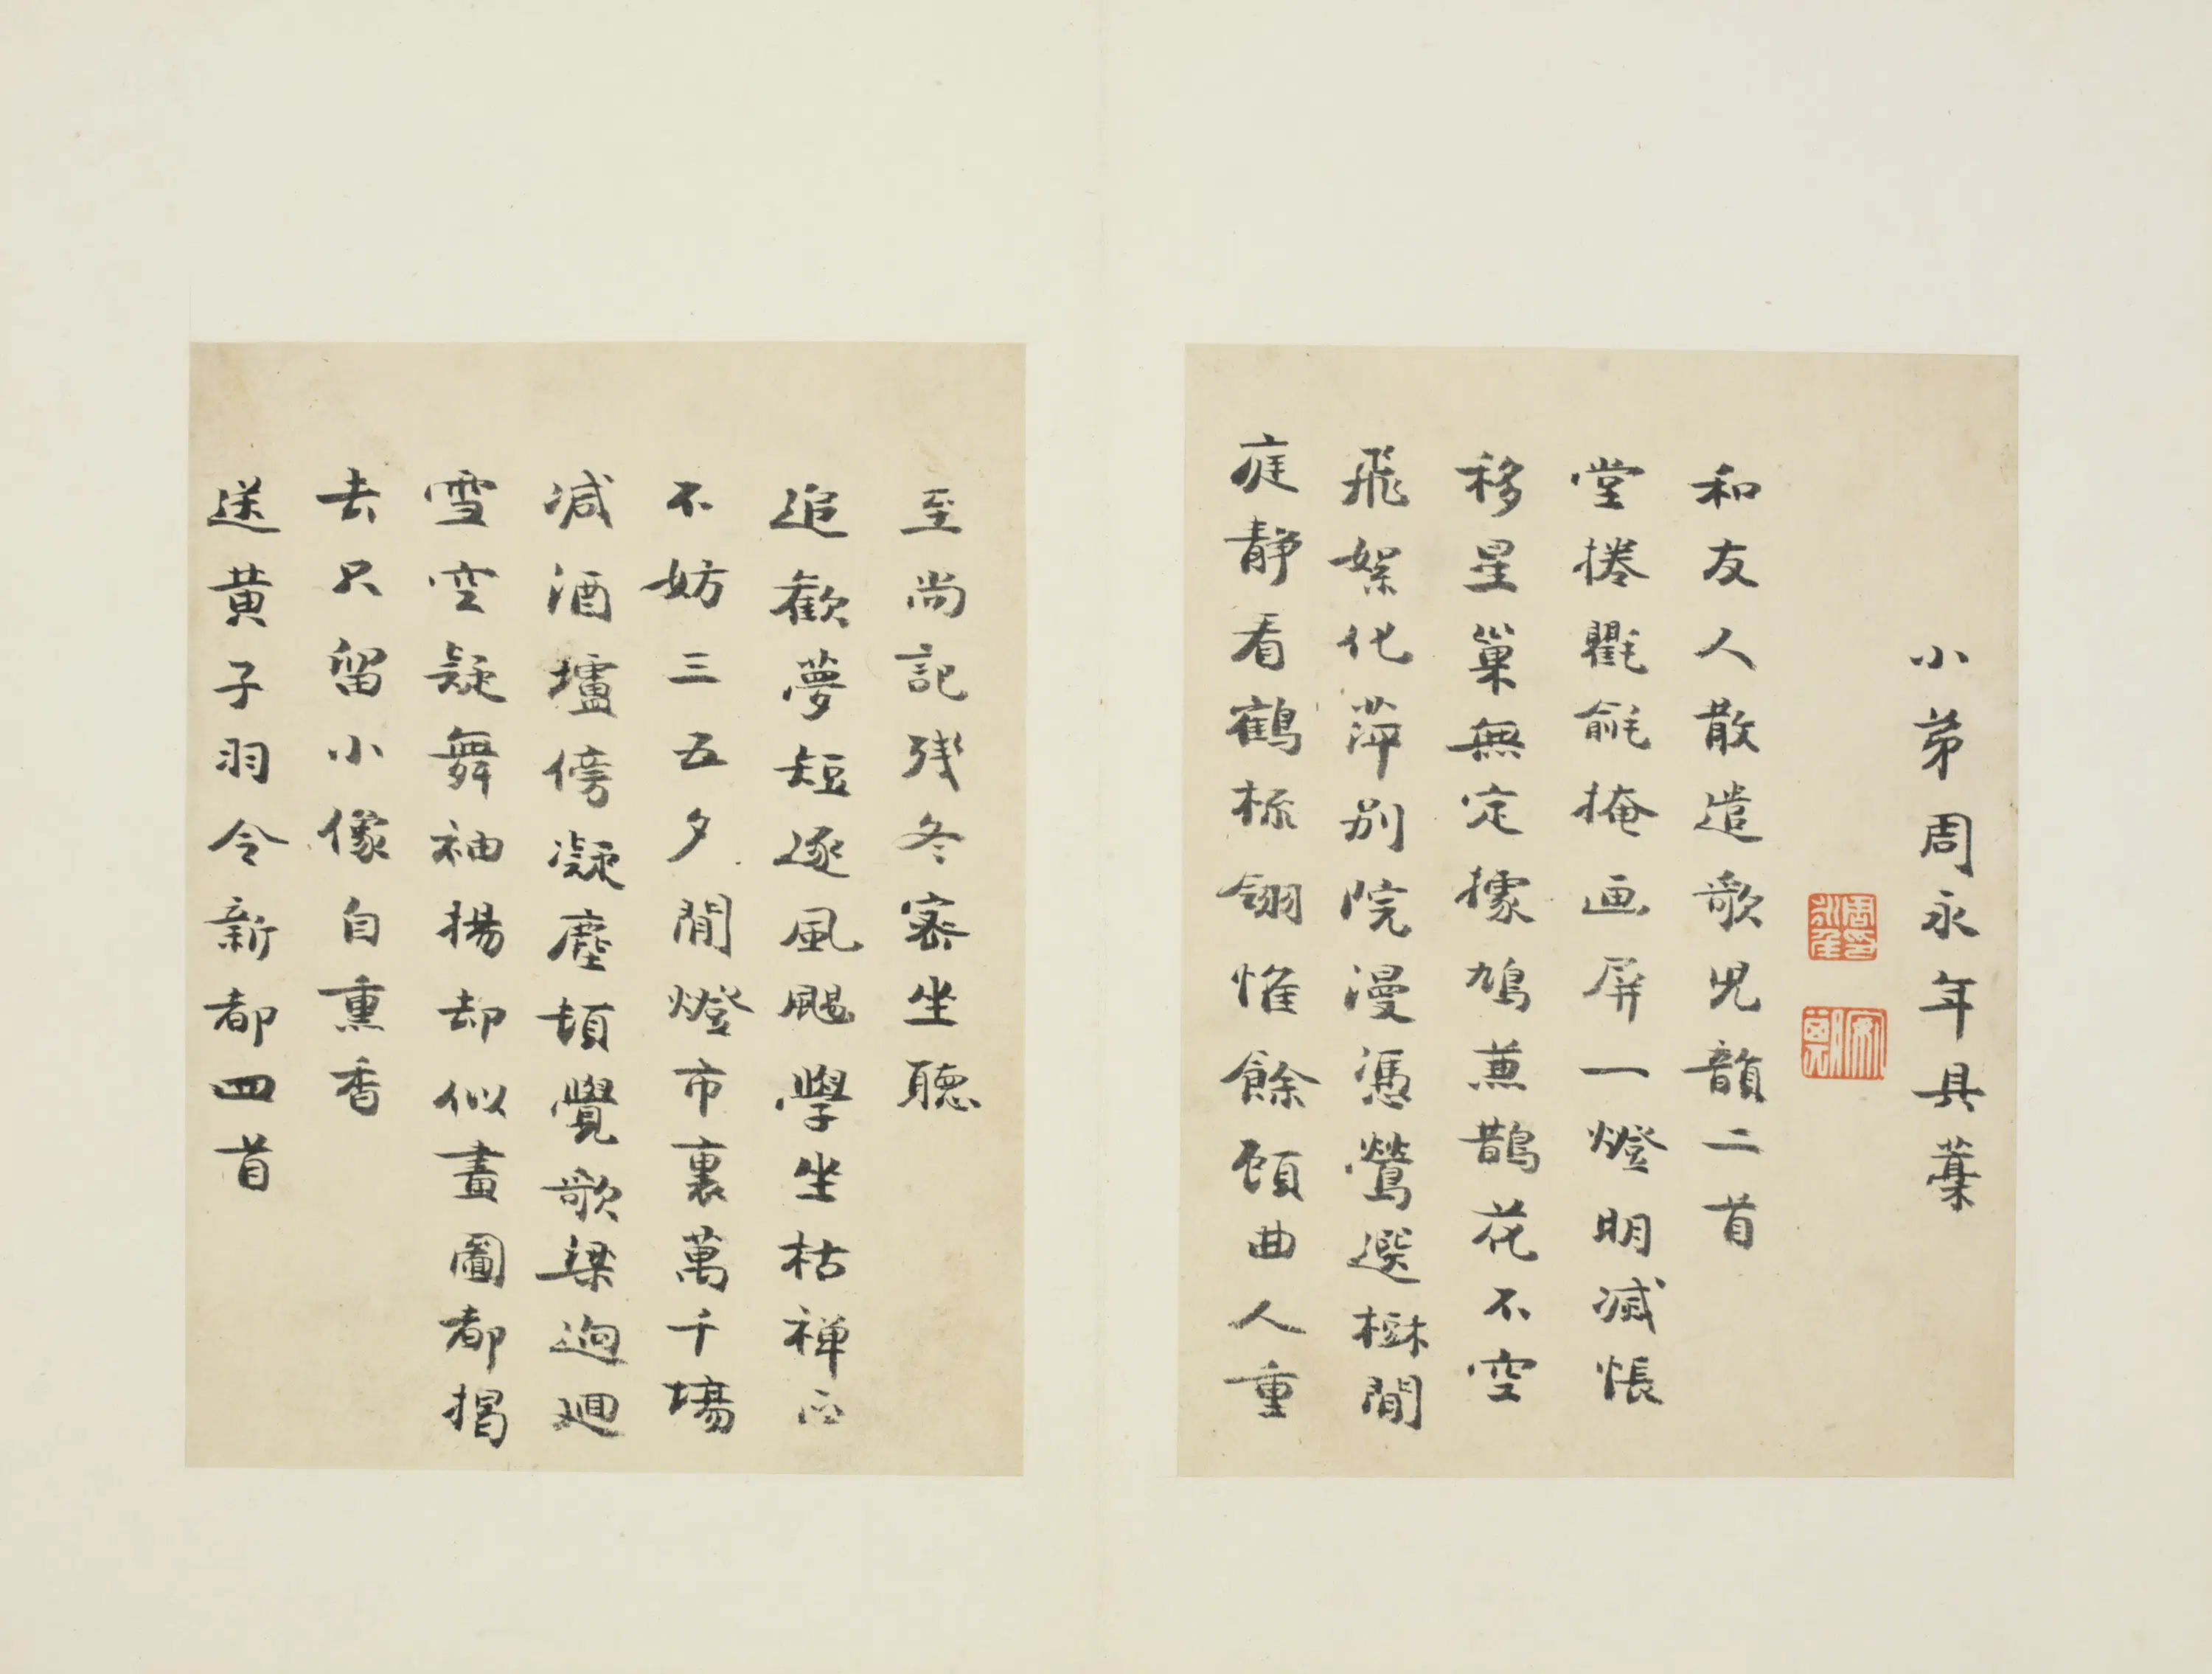 小弟周永年具藁
周永年印
和友人散遣歌児韻二首
堂捲氍毹掩画屏一燈明滅悵
移星巢無定據鳩蒹鵲花不空
飛絮化萍別院漫憑鶯選樹閒
庭静看鶴梳翎惟餘顧曲人重
至尚記殘冬密坐聽
追歡夢短逐風颺學坐枯禅正
不妨三五夕閒燈市裏萬千場
减酒壚傍凝塵頓覺歌梁迥廻
雪空疑舞袖揚却似畫圖都揭
去只留小像自熏香
送黄子羽令新都四首